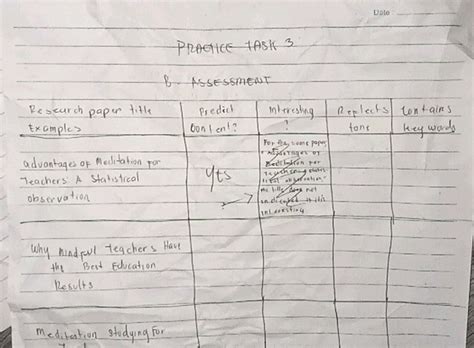 Date
PRACTICE TASK 3
B. ASSESSMENT
Research paper title Predict Interesting Reflects Contains
Examples Content? ? tone key words
Advantages of Meditation for
Teachers: A Statistical
observation
Yes
For the same paper,
Advantages of
Meditation for
Teachers
the title does not
indicated it is
interesting
Why Mindful Teachers Have
the Best Education
Results
Meditation Studying for